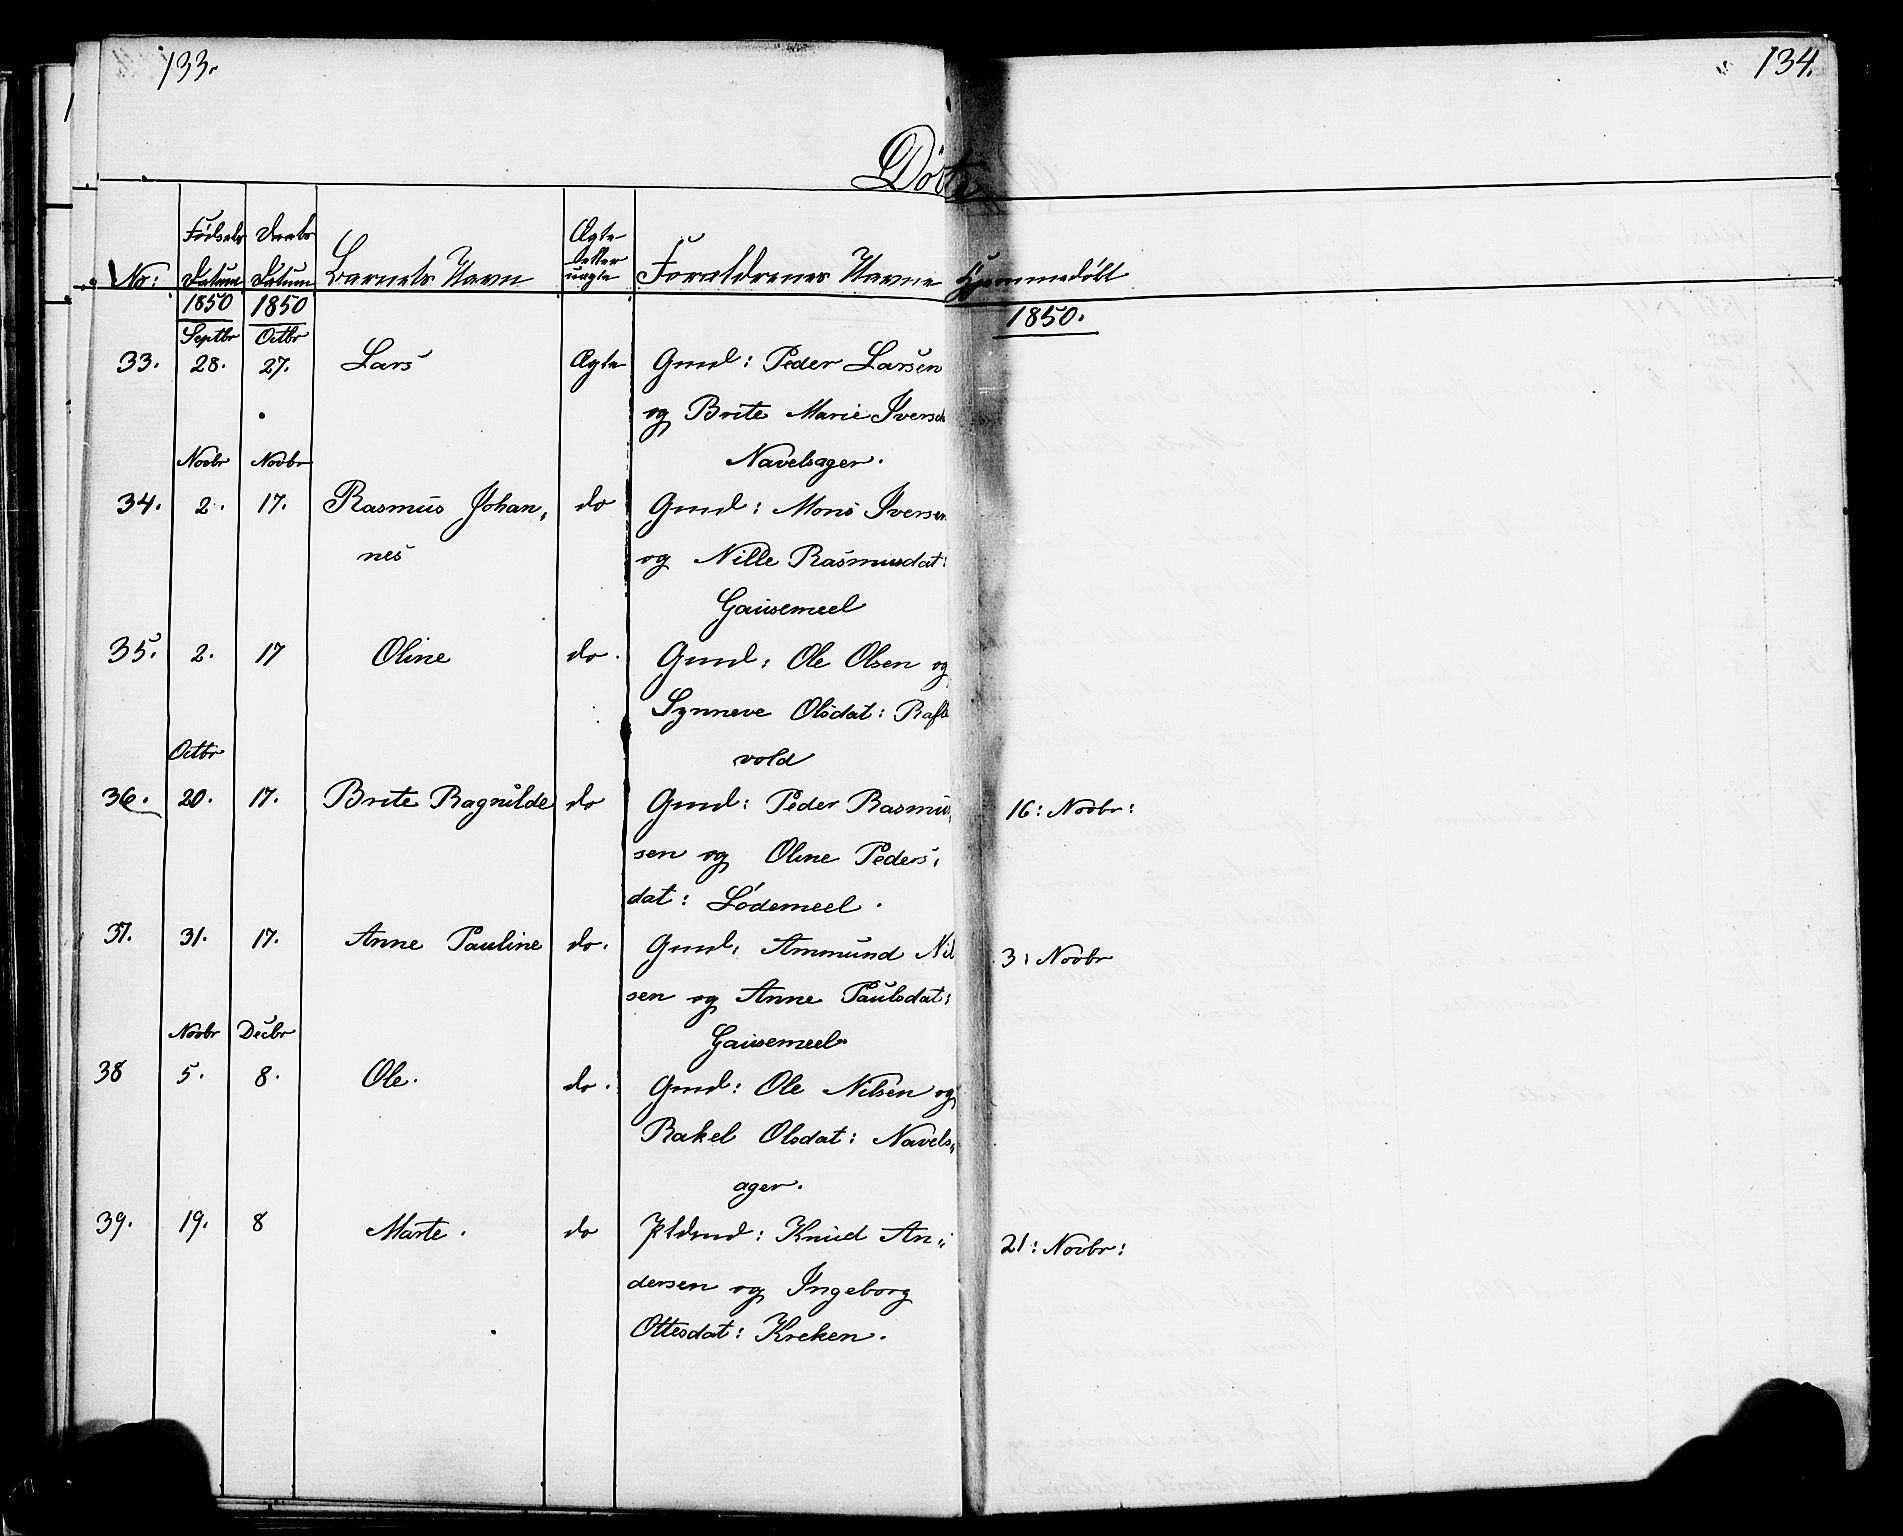 133.
134.
Døbte
No: Fødsels Datum Daabs Datum Barnets Navn Ægte heller uægte Forældrenes Navne Hjemmedøbt
1850 1850 1850.
Septbr Octbr
33. 28. 27. Lars Ægte Gmd: Peder Larsen
og Brite Marie Iversd
Novbr Novbr Navelsager.
34. 2. 17. Rasmus Johan„ do Gmd: Mons Iversen
nes og Nille Rasmusdat:
Gausemeel
35. 2. 17 Oline do. Gmd: Ole Olsen og
Synneve Olsdat: Rafte
Octbr vold
36. 20. 17. Brite Ragnilde do Gmd: Peder Rasmus„ 16: Novbr:
sen og Oline Peders„
dat: Lødemeel.
37. 31. 17. Anne Pauline do. Gmd: Ammund Nil 3: Novbr
sen og Anne Paulsdat:
Novbr Decbr Gausemeel
38 5. 8. Ole. do. Gmd: Ole Nilsen og
Rakel Olsdat: Navels„
ager.
39. 19. 8 Marte. do Plsmd: Knud An„ 21: Novbr:
dersen og Ingeborg
Ottesdat: Kreken.